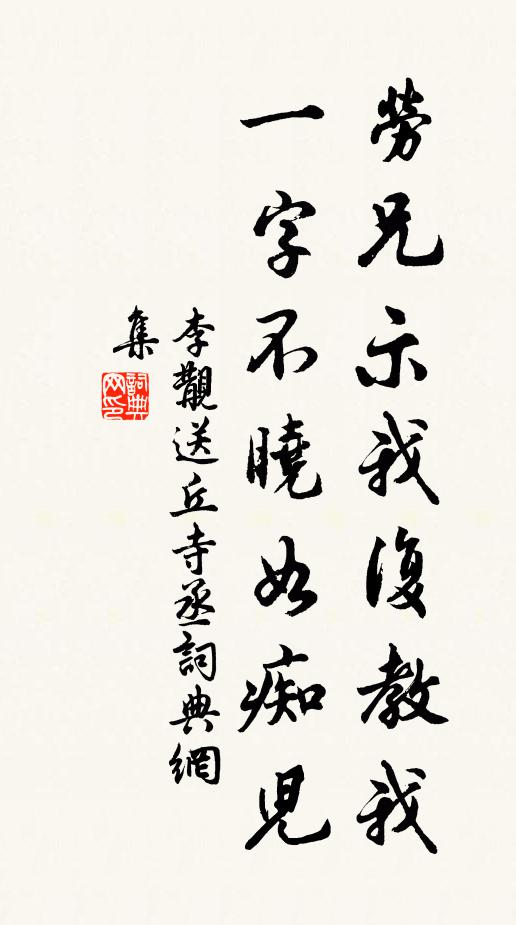 勞兄示我復教我
一字不曉如痴児
李觀送丘寺丞詞典網
集
詞典网印